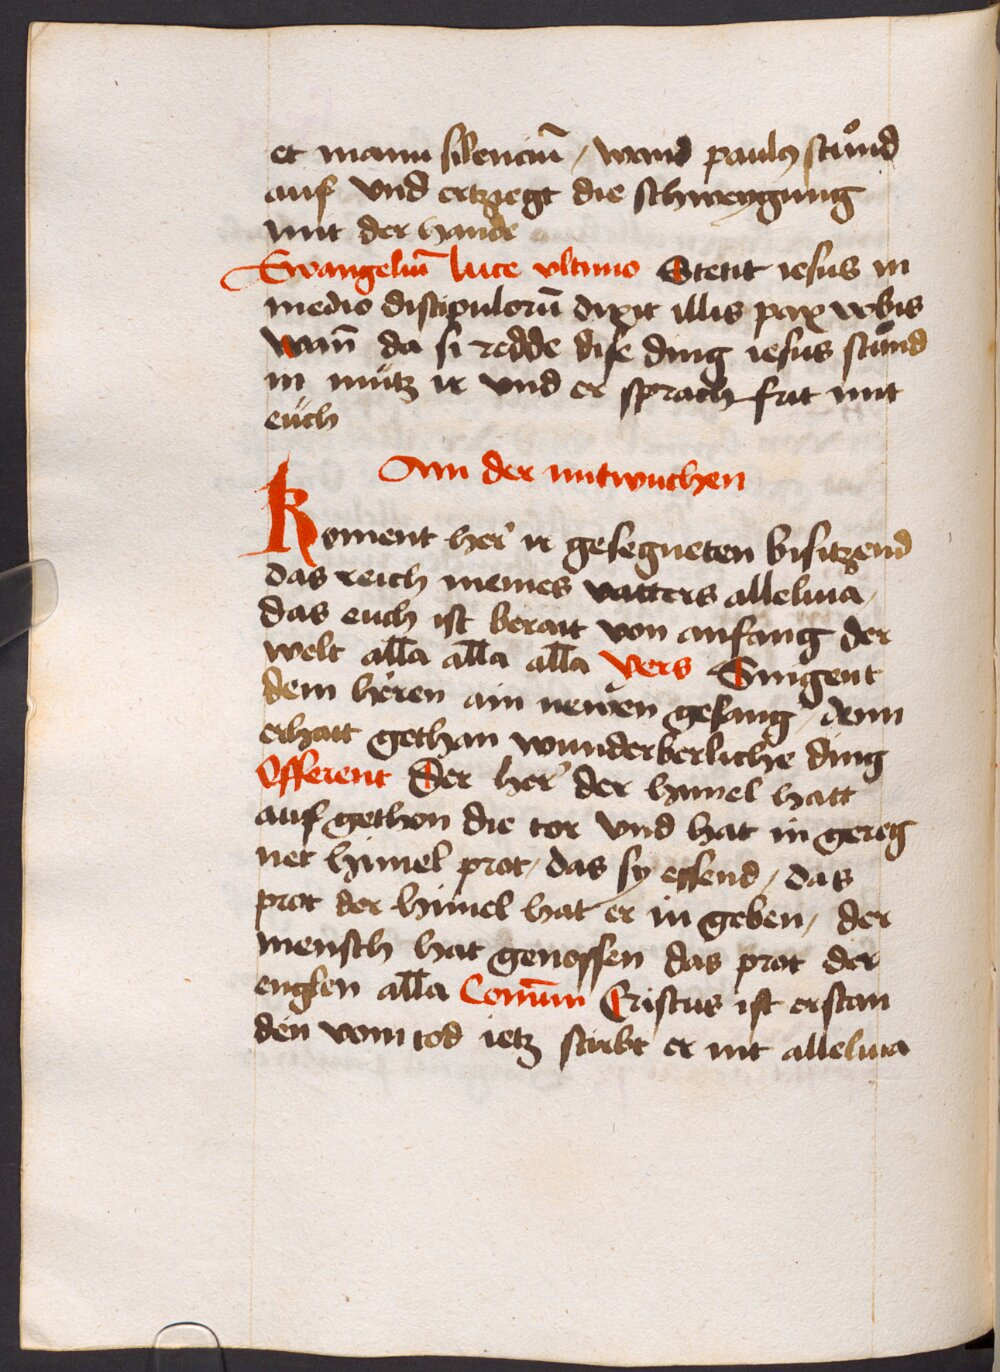 et manu silenciū / wand paulus stuͦnd
auf vnd ertziegt die schweygung
mit der hande
Ewangeliū luce vltimo Stetit iesus in
medio discipulorū dixit illis pax vobis
wan̄ da si redde dise ding iesus stuͦnd
in mitz ir vnd er sprach frit mit
eüch
Am der mitwuchen
Koment her ir gesegneten bisitzend
das reich meines vatters alleluia /
das euch ist berait von anfang der
welt alla alla alla Vers Singent
dem heren ain newen gesang / denn
erhatt gethan wunderberliche ding
Offerent Der her der himel hatt
auf gethon die tor vnd hat in gereg
net himel prot / das sy essend / das
prot der himel hat er in geben / der
mensch hat genossen das prot der
englen alla Comūn Cristus ist erstan
den vom tod ietz stirbt er nit alleluia